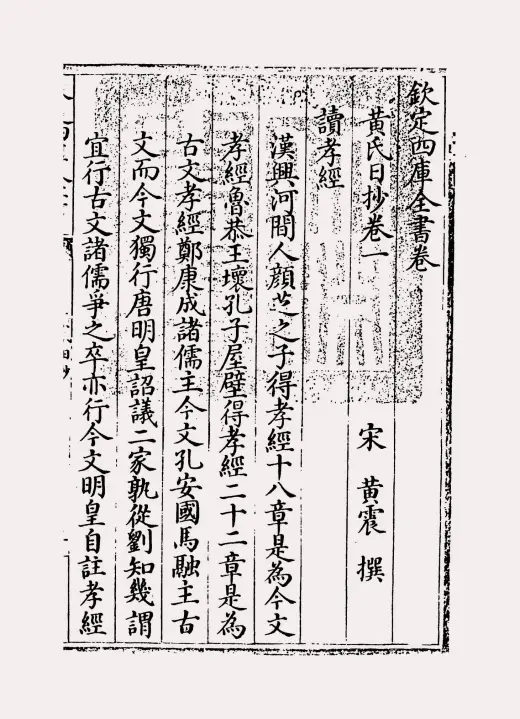 欽定四庫全書卷
黃氏日抄卷一
宋 黃震 撰
讀孝經
漢興河間人顔芝之子得孝經十八章是為今文
孝經魯恭王壞孔子屋壁得孝經二十二章是為
古文孝經鄭康成諸儒主今文孔安國馬融主古
文而今文獨行唐明皇詔議二家孰從劉知幾謂
宜行古文諸儒爭之卒亦行今文明皇自註孝經